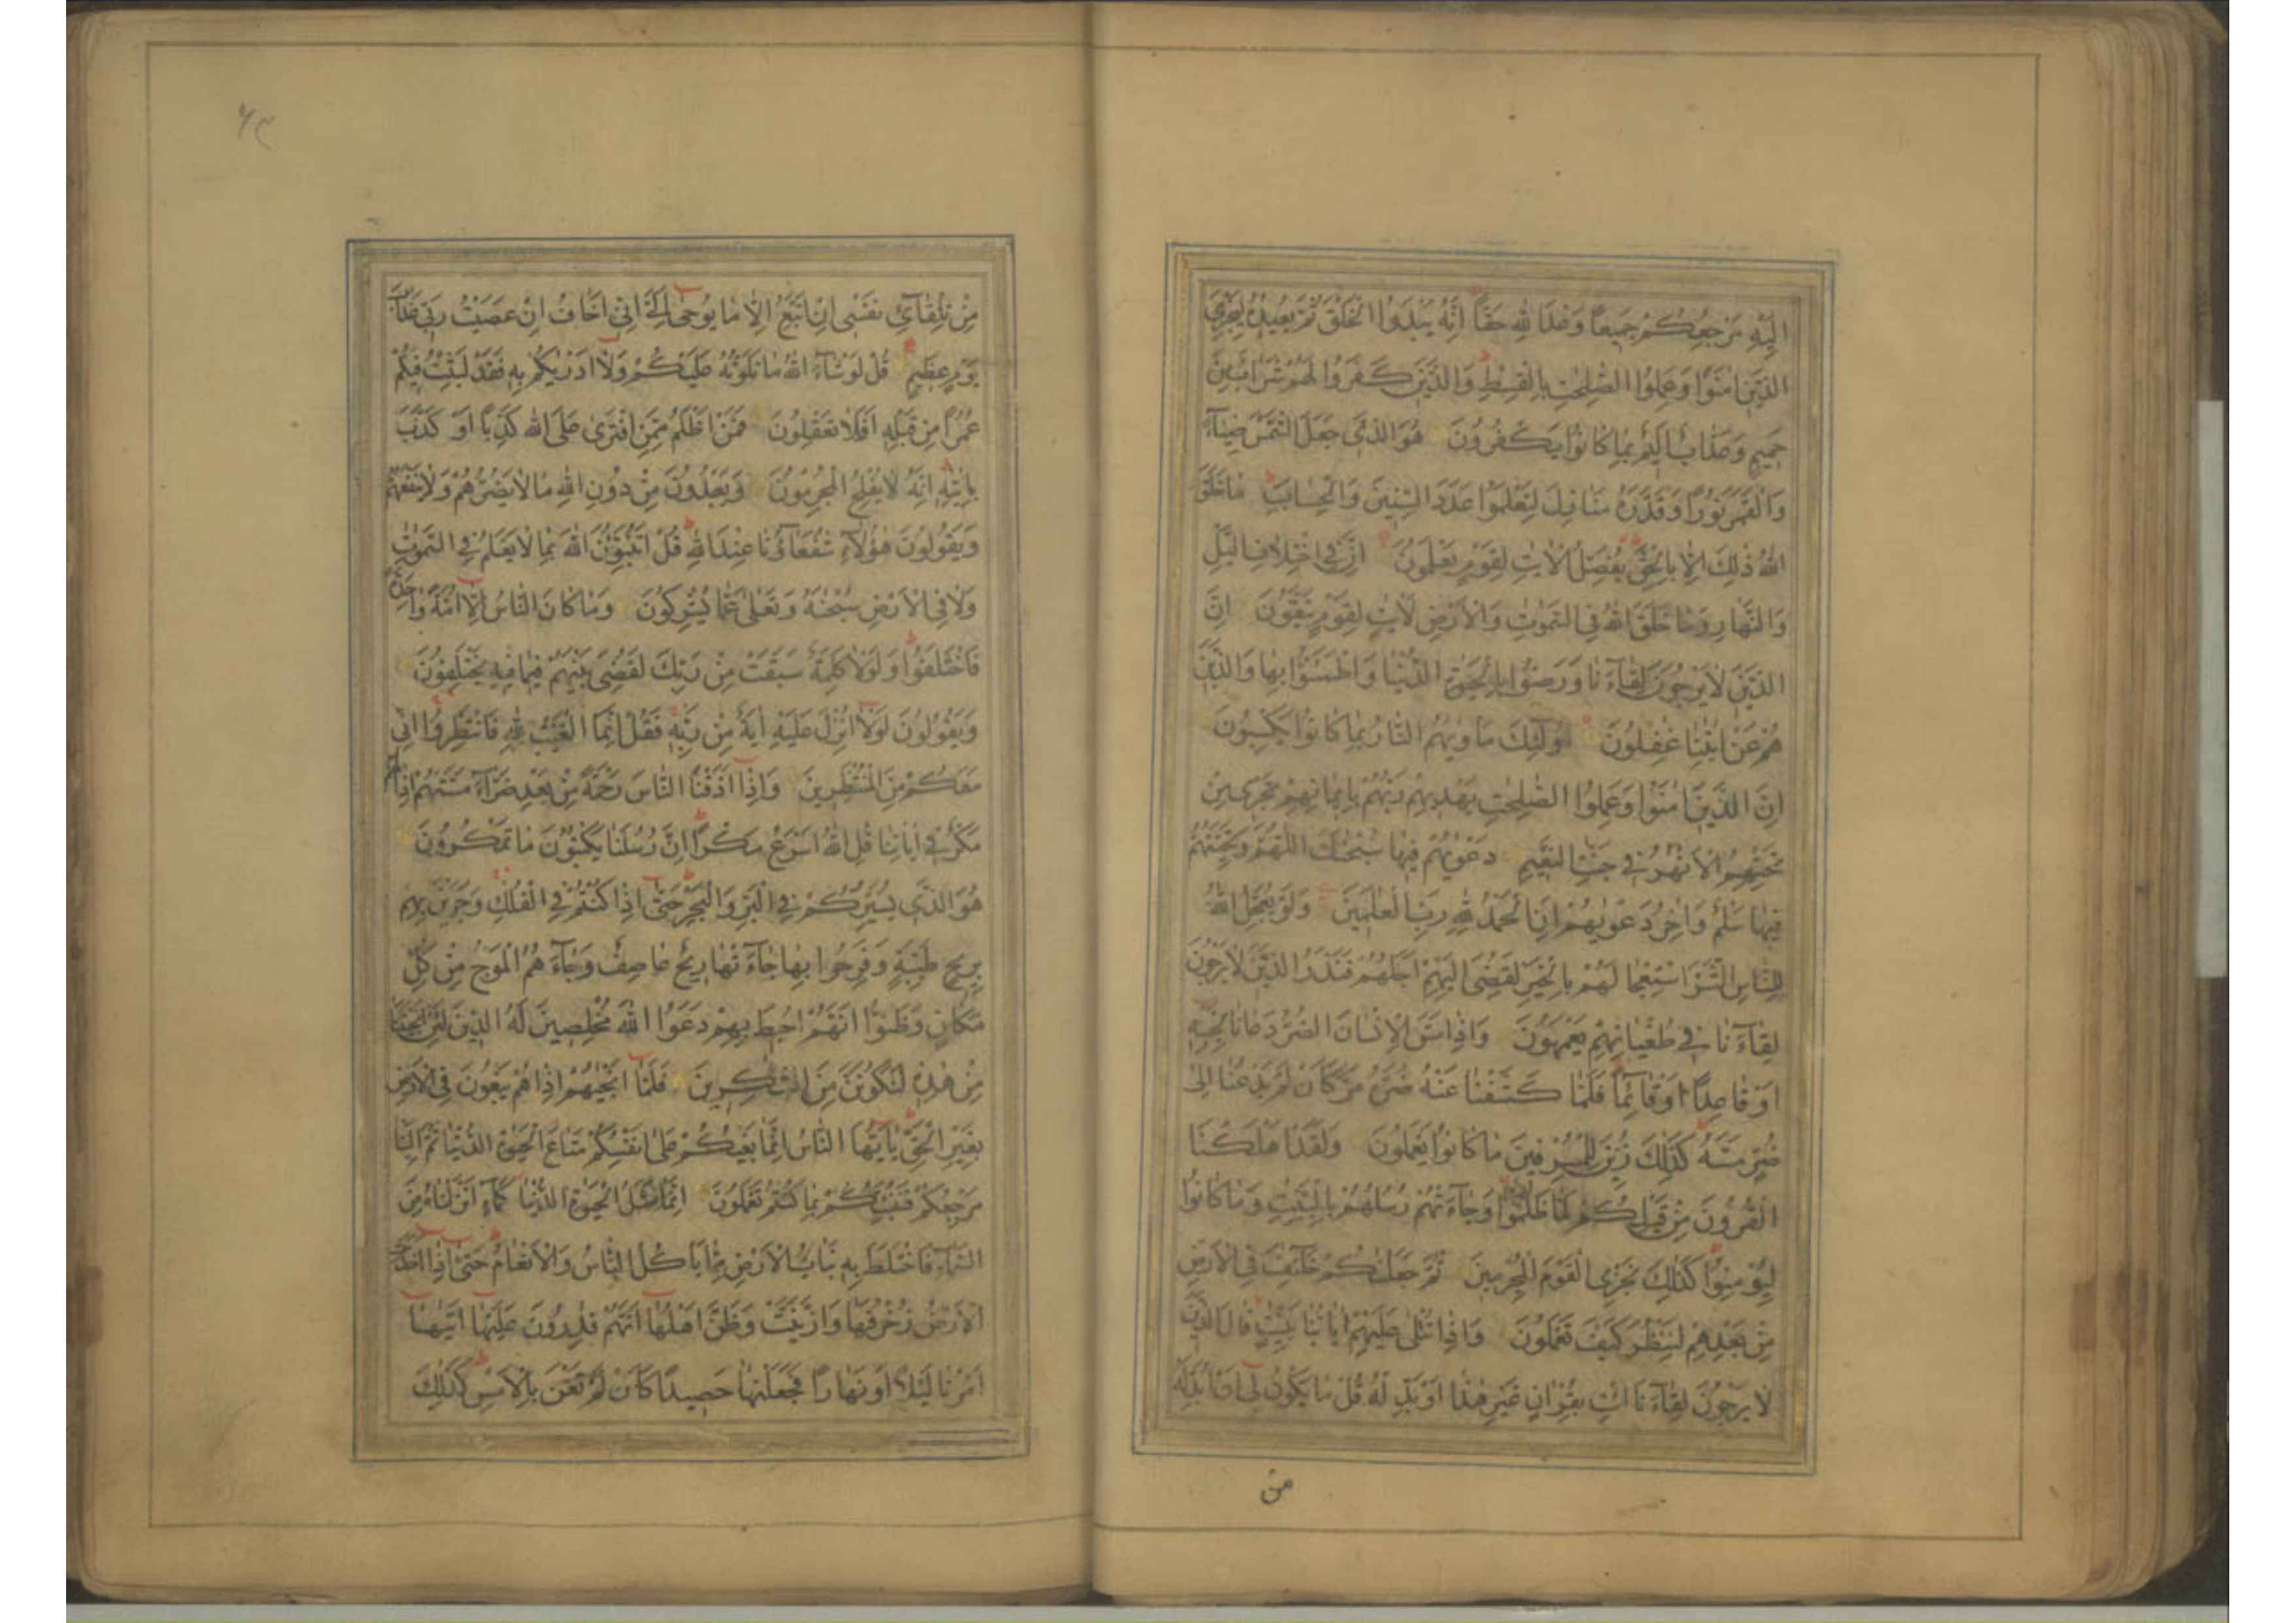 اِلَيْهِ مَرْجِعُكُمْ جَمِيعًا وَعْدَ اللّٰهِ حَقًّا اِنَّهُ يَبْدَؤُا الْخَلْقَ ثُمَّ يُعِيدُهُ لِيَجْزِيَ
الَّذِينَ اٰمَنُوا وَعَمِلُوا الصّٰلِحٰتِ بِالْقِسْطِ وَالَّذِينَ كَفَرُوا لَهُمْ شَرَابٌ مِنْ
حَمِيمٍ وَعَذَابٌ اَلِيمٌ بِمَا كَانُوا يَكْفُرُونَ هُوَ الَّذِي جَعَلَ الشَّمْسَ ضِيَاءً
وَالْقَمَرَ نُورًا وَقَدَّرَهُ مَنَازِلَ لِتَعْلَمُوا عَدَدَ السِّنِينَ وَالْحِسَابَ مَا خَلَقَ
اللّٰهُ ذٰلِكَ اِلَّا بِالْحَقِّ يُفَصِّلُ الْاٰيٰتِ لِقَوْمٍ يَعْلَمُونَ اِنَّ فِي اخْتِلَافِ الَّيْلِ
وَالنَّهَارِ وَمَا خَلَقَ اللّٰهُ فِي السَّمٰوٰتِ وَالْاَرْضِ لَاٰيٰتٍ لِقَوْمٍ يَتَّقُونَ اِنَّ
الَّذِينَ لَا يَرْجُونَ لِقَاءَنَا وَرَضُوا بِالْحَيٰوةِ الدُّنْيَا وَاطْمَئَنُّوا بِهَا وَالَّذِينَ
هُمْ عَنْ اٰيٰتِنَا غٰفِلُونَ اُولٰئِكَ مَاْوٰيهُمُ النَّارُ بِمَا كَانُوا يَكْسِبُونَ
اِنَّ الَّذِينَ اٰمَنُوا وَعَمِلُوا الصّٰلِحٰتِ يَهْدِيهِمْ رَبُّهُمْ بِاِيمَانِهِمْ تَجْرِي مِنْ
تَحْتِهِمُ الْاَنْهٰرُ فِي جَنّٰتِ النَّعِيمِ دَعْوٰيهُمْ فِيهَا سُبْحٰنَكَ اللّٰهُمَّ وَتَحِيَّتُهُمْ
فِيهَا سَلٰمٌ وَاٰخِرُ دَعْوٰيهُمْ اَنِ الْحَمْدُ لِلّٰهِ رَبِّ الْعٰلَمِينَ وَلَوْ يُعَجِّلُ اللّٰهُ
لِلنَّاسِ الشَّرَّ اسْتِعْجَالَهُمْ بِالْخَيْرِ لَقُضِيَ اِلَيْهِمْ اَجَلُهُمْ فَنَذَرُ الَّذِينَ لَا يَرْجُونَ
لِقَاءَنَا فِي طُغْيَانِهِمْ يَعْمَهُونَ وَاِذَا مَسَّ الْاِنْسَانَ الضُّرُّ دَعَانَا لِجَنْبِهِ
اَوْ قَاعِدًا اَوْ قَائِمًا فَلَمَّا كَشَفْنَا عَنْهُ ضُرَّهُ مَرَّ كَاَنْ لَمْ يَدْعُنَا اِلٰى
ضُرٍّ مَسَّهُ كَذٰلِكَ زُيِّنَ لِلْمُسْرِفِينَ مَا كَانُوا يَعْمَلُونَ وَلَقَدْ اَهْلَكْنَا
الْقُرُونَ مِنْ قَبْلِكُمْ لَمَّا ظَلَمُوا وَجَاءَتْهُمْ رُسُلُهُمْ بِالْبَيِّنٰتِ وَمَا كَانُوا
لِيُؤْمِنُوا كَذٰلِكَ نَجْزِي الْقَوْمَ الْمُجْرِمِينَ ثُمَّ جَعَلْنٰكُمْ خَلٰئِفَ فِي الْاَرْضِ
مِنْ بَعْدِهِمْ لِنَنْظُرَ كَيْفَ تَعْمَلُونَ وَاِذَا تُتْلٰى عَلَيْهِمْ اٰيَاتُنَا بَيِّنٰتٍ قَالَ الَّذِينَ
لَا يَرْجُونَ لِقَاءَنَا ائْتِ بِقُرْاٰنٍ غَيْرِ هٰذَا اَوْ بَدِّلْهُ قُلْ مَا يَكُونُ لِي اَنْ اُبَدِّلَهُ
من
٦٣
مِنْ تِلْقَائِ نَفْسِي اِنْ اَتَّبِعُ اِلَّا مَا يُوحٰى اِلَيَّ اِنِّي اَخَافُ اِنْ عَصَيْتُ رَبِّي عَذَابَ
يَوْمٍ عَظِيمٍ قُلْ لَوْ شَاءَ اللّٰهُ مَا تَلَوْتُهُ عَلَيْكُمْ وَلَا اَدْرٰيكُمْ بِهِ فَقَدْ لَبِثْتُ فِيكُمْ
عُمُرًا مِنْ قَبْلِهِ اَفَلَا تَعْقِلُونَ فَمَنْ اَظْلَمُ مِمَّنِ افْتَرٰى عَلَى اللّٰهِ كَذِبًا اَوْ كَذَّبَ
بِاٰيٰتِهِ اِنَّهُ لَا يُفْلِحُ الْمُجْرِمُونَ وَيَعْبُدُونَ مِنْ دُونِ اللّٰهِ مَا لَا يَضُرُّهُمْ وَلَا يَنْفَعُهُمْ
وَيَقُولُونَ هٰؤُلَاءِ شُفَعَاؤُنَا عِنْدَ اللّٰهِ قُلْ اَتُنَبِّئُونَ اللّٰهَ بِمَا لَا يَعْلَمُ فِي السَّمٰوٰتِ
وَلَا فِي الْاَرْضِ سُبْحٰنَهُ وَتَعٰلٰى عَمَّا يُشْرِكُونَ وَمَا كَانَ النَّاسُ اِلَّا اُمَّةً وَاحِدَةً
فَاخْتَلَفُوا وَلَوْلَا كَلِمَةٌ سَبَقَتْ مِنْ رَبِّكَ لَقُضِيَ بَيْنَهُمْ فِيمَا فِيهِ يَخْتَلِفُونَ
وَيَقُولُونَ لَوْلَا اُنْزِلَ عَلَيْهِ اٰيَةٌ مِنْ رَبِّهِ فَقُلْ اِنَّمَا الْغَيْبُ لِلّٰهِ فَانْتَظِرُوا اِنِّي
مَعَكُمْ مِنَ الْمُنْتَظِرِينَ وَاِذَا اَذَقْنَا النَّاسَ رَحْمَةً مِنْ بَعْدِ ضَرَّاءَ مَسَّتْهُمْ اِذَا لَهُمْ
مَكْرٌ فِي اٰيَاتِنَا قُلِ اللّٰهُ اَسْرَعُ مَكْرًا اِنَّ رُسُلَنَا يَكْتُبُونَ مَا تَمْكُرُونَ
هُوَ الَّذِي يُسَيِّرُكُمْ فِي الْبَرِّ وَالْبَحْرِ حَتّٰى اِذَا كُنْتُمْ فِي الْفُلْكِ وَجَرَيْنَ بِهِمْ
بِرِيحٍ طَيِّبَةٍ وَفَرِحُوا بِهَا جَاءَتْهَا رِيحٌ عَاصِفٌ وَجَاءَهُمُ الْمَوْجُ مِنْ كُلِّ
مَكَانٍ وَظَنُّوا اَنَّهُمْ اُحِيطَ بِهِمْ دَعَوُا اللّٰهَ مُخْلِصِينَ لَهُ الدِّينَ لَئِنْ اَنْجَيْتَنَا
مِنْ هٰذِهِ لَنَكُونَنَّ مِنَ الشّٰكِرِينَ فَلَمَّا اَنْجٰيهُمْ اِذَا هُمْ يَبْغُونَ فِي الْاَرْضِ
بِغَيْرِ الْحَقِّ يَا اَيُّهَا النَّاسُ اِنَّمَا بَغْيُكُمْ عَلٰى اَنْفُسِكُمْ مَتَاعَ الْحَيٰوةِ الدُّنْيَا ثُمَّ اِلَيْنَا
مَرْجِعُكُمْ فَنُنَبِّئُكُمْ بِمَا كُنْتُمْ تَعْمَلُونَ اِنَّمَا مَثَلُ الْحَيٰوةِ الدُّنْيَا كَمَاءٍ اَنْزَلْنَاهُ مِنَ
السَّمَاءِ فَاخْتَلَطَ بِهِ نَبَاتُ الْاَرْضِ مِمَّا يَاْكُلُ النَّاسُ وَالْاَنْعَامُ حَتّٰى اِذَا اَخَذَتِ
الْاَرْضُ زُخْرُفَهَا وَازَّيَّنَتْ وَظَنَّ اَهْلُهَا اَنَّهُمْ قٰدِرُونَ عَلَيْهَا اَتٰيهَا
اَمْرُنَا لَيْلًا اَوْ نَهَارًا فَجَعَلْنٰهَا حَصِيدًا كَاَنْ لَمْ تَغْنَ بِالْاَمْسِ كَذٰلِكَ